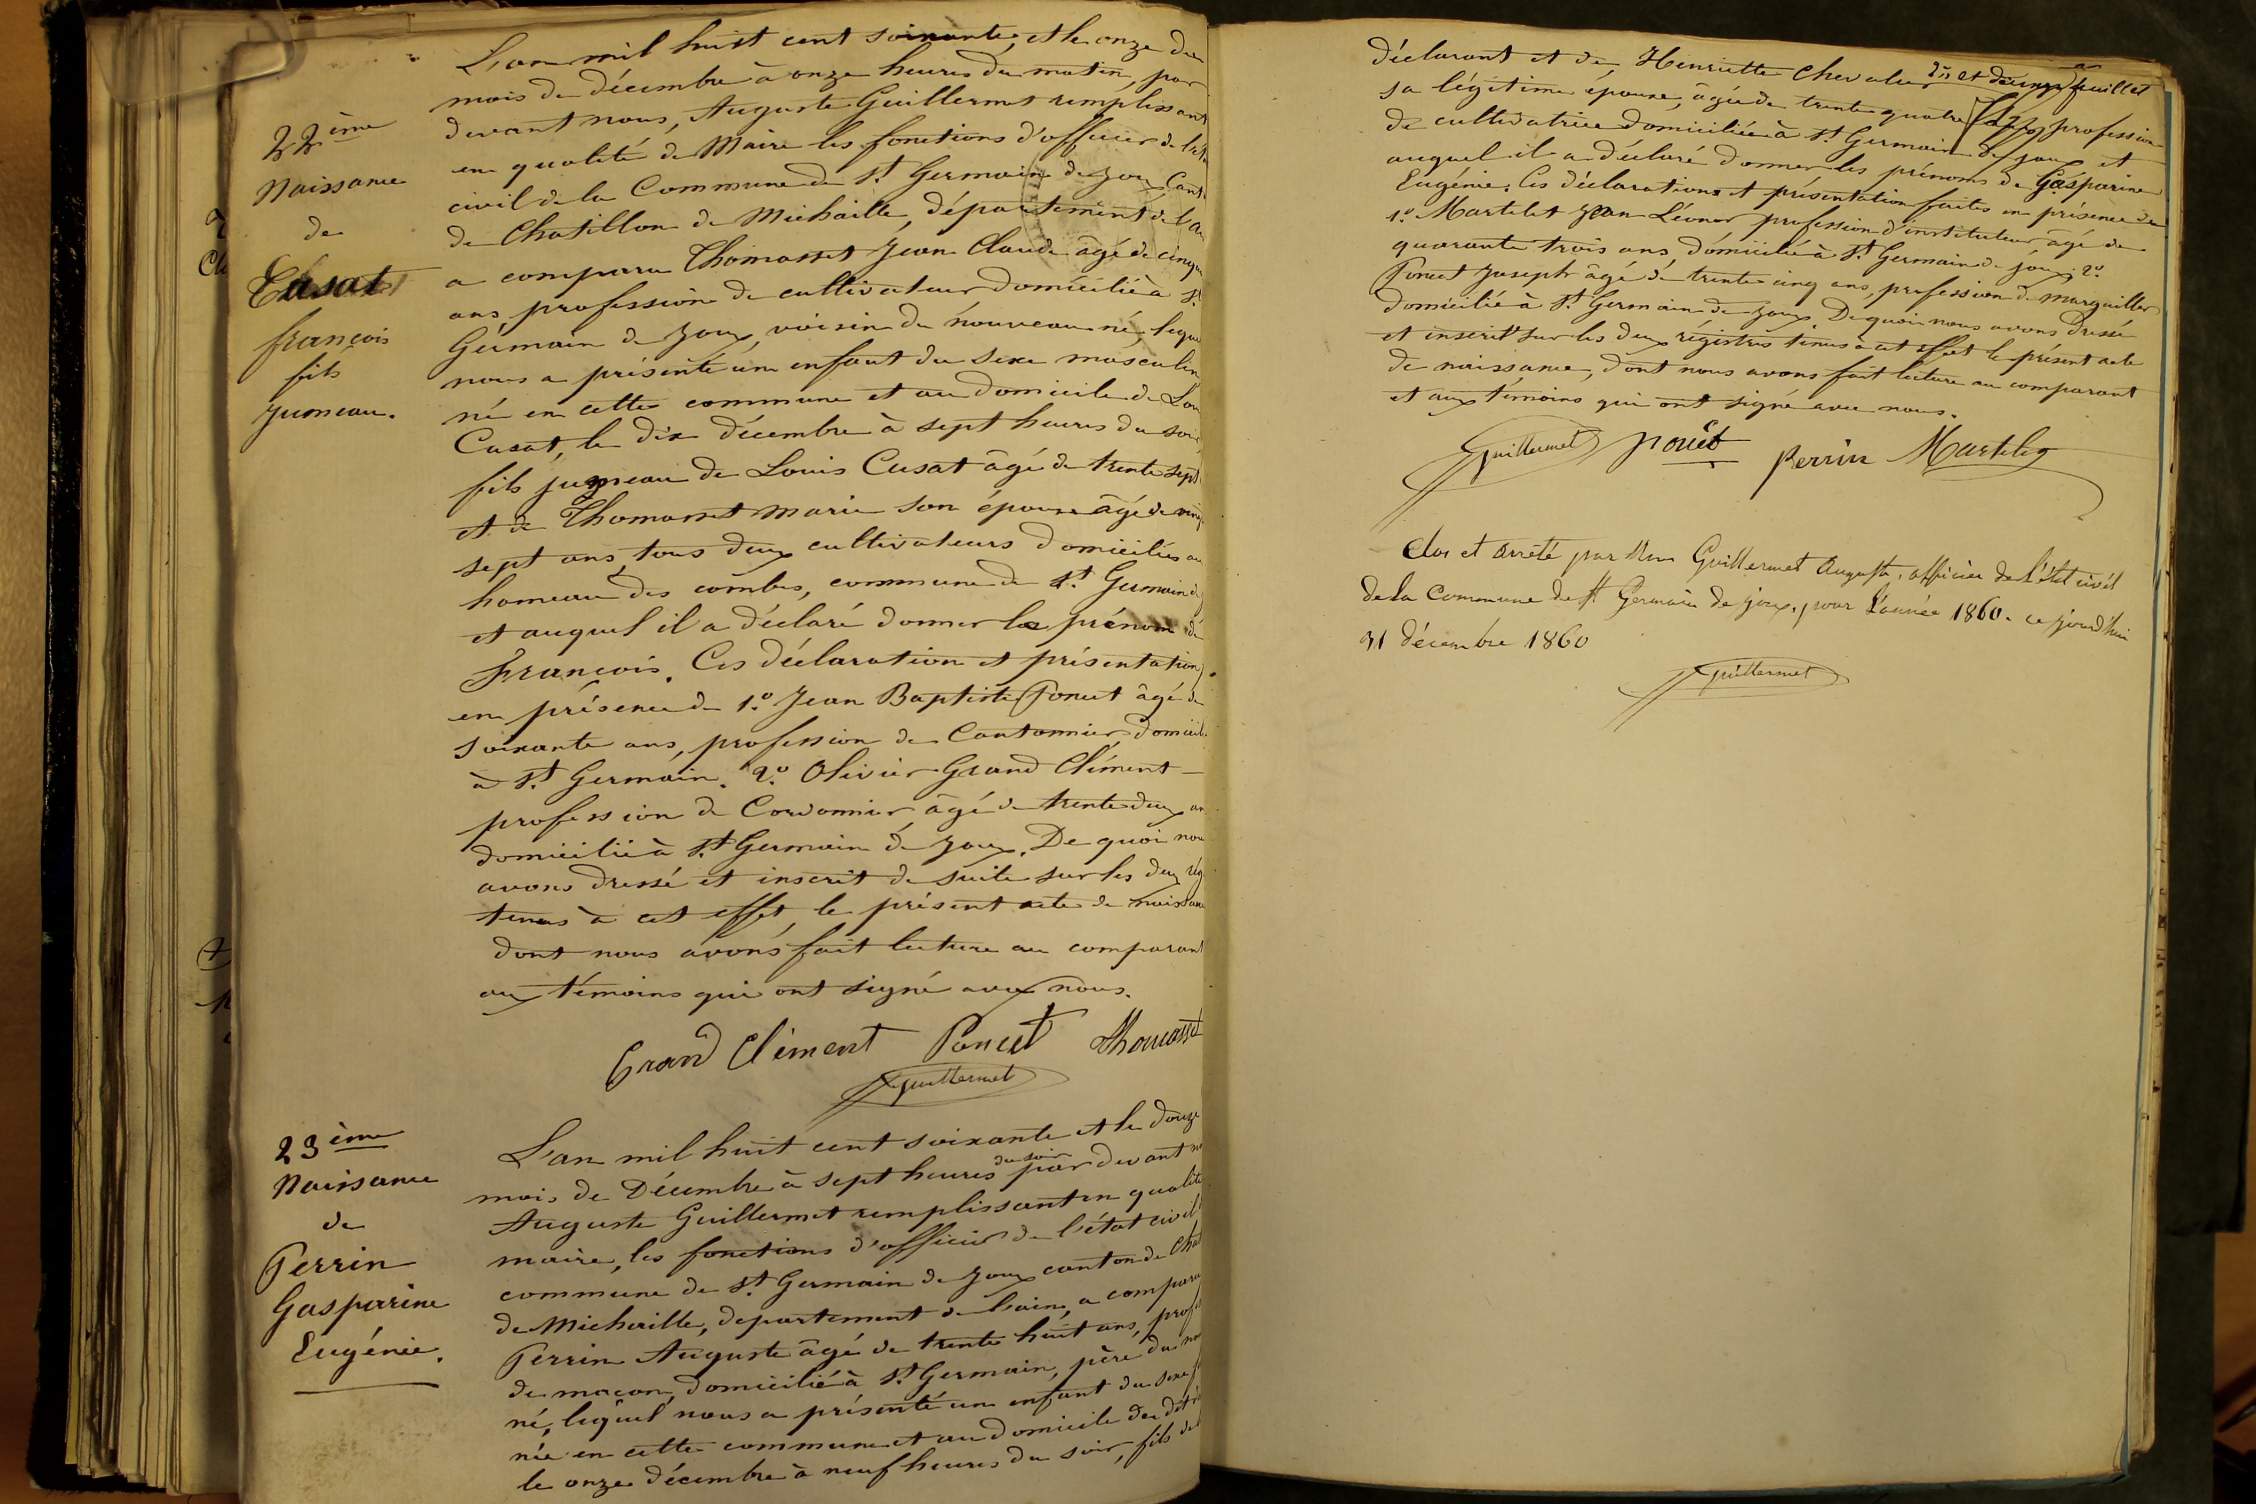 22ème
Naissance
de
Cusat
françois
fils
jumeau.
L'an mil huit cent soixante, et le onze du
mois de décembre à onze heures du matin, par
devant nous, Auguste Guillermet remplissant
en qualité de Maire les fonctions d'officier de l'éta
civil de la Commune de St. Germain de Joux, Cant
de Chatillon de Michaille, département de l'Ain
a comparu Thomasset Jean Claude âgé de cinqu
ans profession de cultivateur domicilié à St.
Germain de Joux, voisin du nouveau né, lequel
nous a présenté un enfant du sexe masculin
né en cette commune et au domicile de Lou
Cusat, le dix décembre à sept heures du soir,
fils jumeau de Louis Cusat âgé de trente sept
et de Thomasset Marie son épouse âgé de vingt
sept ans, tous deux cultivateurs domiciliés au
hameau des combes, commune de St. Germain d
et auquel il a déclaré donner le prénom de
François. Ces déclaration et présentation
en présence de 1.º Jean Baptiste Poncet âgé de
soixante ans, profession de Cantonnier, domicil
à St. Germain. 2.º Olivier Grand Clément
profession de Cordonnier, âgé de trente deux an
domicilié à St. Germain de Joux. De quoi nou
avons dressé et inscrit de suite sur les deux rég
tenus à cet effet, le présent acte de naissanc
dont nous avons fait lecture au comparant
aux témoins qui ont signé avec nous.
Grand Clément Poncet Thomasset
Guillermet
23ème
Naissance
de
Perrin
Gasparine
Eugénie.
L'an mil huit cent soixante et le douze
mois de Décembre à sept heures du soir par devant no
Auguste Guillermet remplissant en qualité
maire, les fonctions d'officier de l'état civil
commune de St. Germain de Joux canton de Chat
de Michaille, departement de l'ain, a comparu
Perrin Auguste âgé de trente huit ans, profe
de maçon, domicilié à St. Germain, père du nou
né, lequel nous a présenté un enfant du sexe f
née en cette commune et au domicile du dit
le onze décembre à neuf heures du soir, fils de
dix et douzième feuillet
déclarant et de Henriette Chevalier
sa légitime épouse, âgée de trente quatre ans, profession
de cultivatrice domiciliée à St. Germain de Joux et
auquel il a déclaré donner les prénoms de Gasparine
Eugénie. Ces déclarations et présentation faites en présence de
1.º Martelet Jean Léonor profession d'instituteur, âgé de
quarante trois ans, domicilié à St. Germain de joux; 2.º
Poncet Joseph âgé de trente cinq ans, profession de marguiller
domicilié à St. Germain de Joux. De quoi nous avons dressé
et inscrit sur les deux régistres tenus à cet effet le présent acte
de naissance, dont nous avons fait lecture au comparant
et aux témoins qui ont signé avec nous.
Guillermet Poncet Perrin Martelet
Clos et arrêté par Nous Guillermet Auguste, officier de l'état civil
de la Commune de St. Germain de Joux, pour l'année 1860. ce jourd'hui
31 décembre 1860
Guillermet